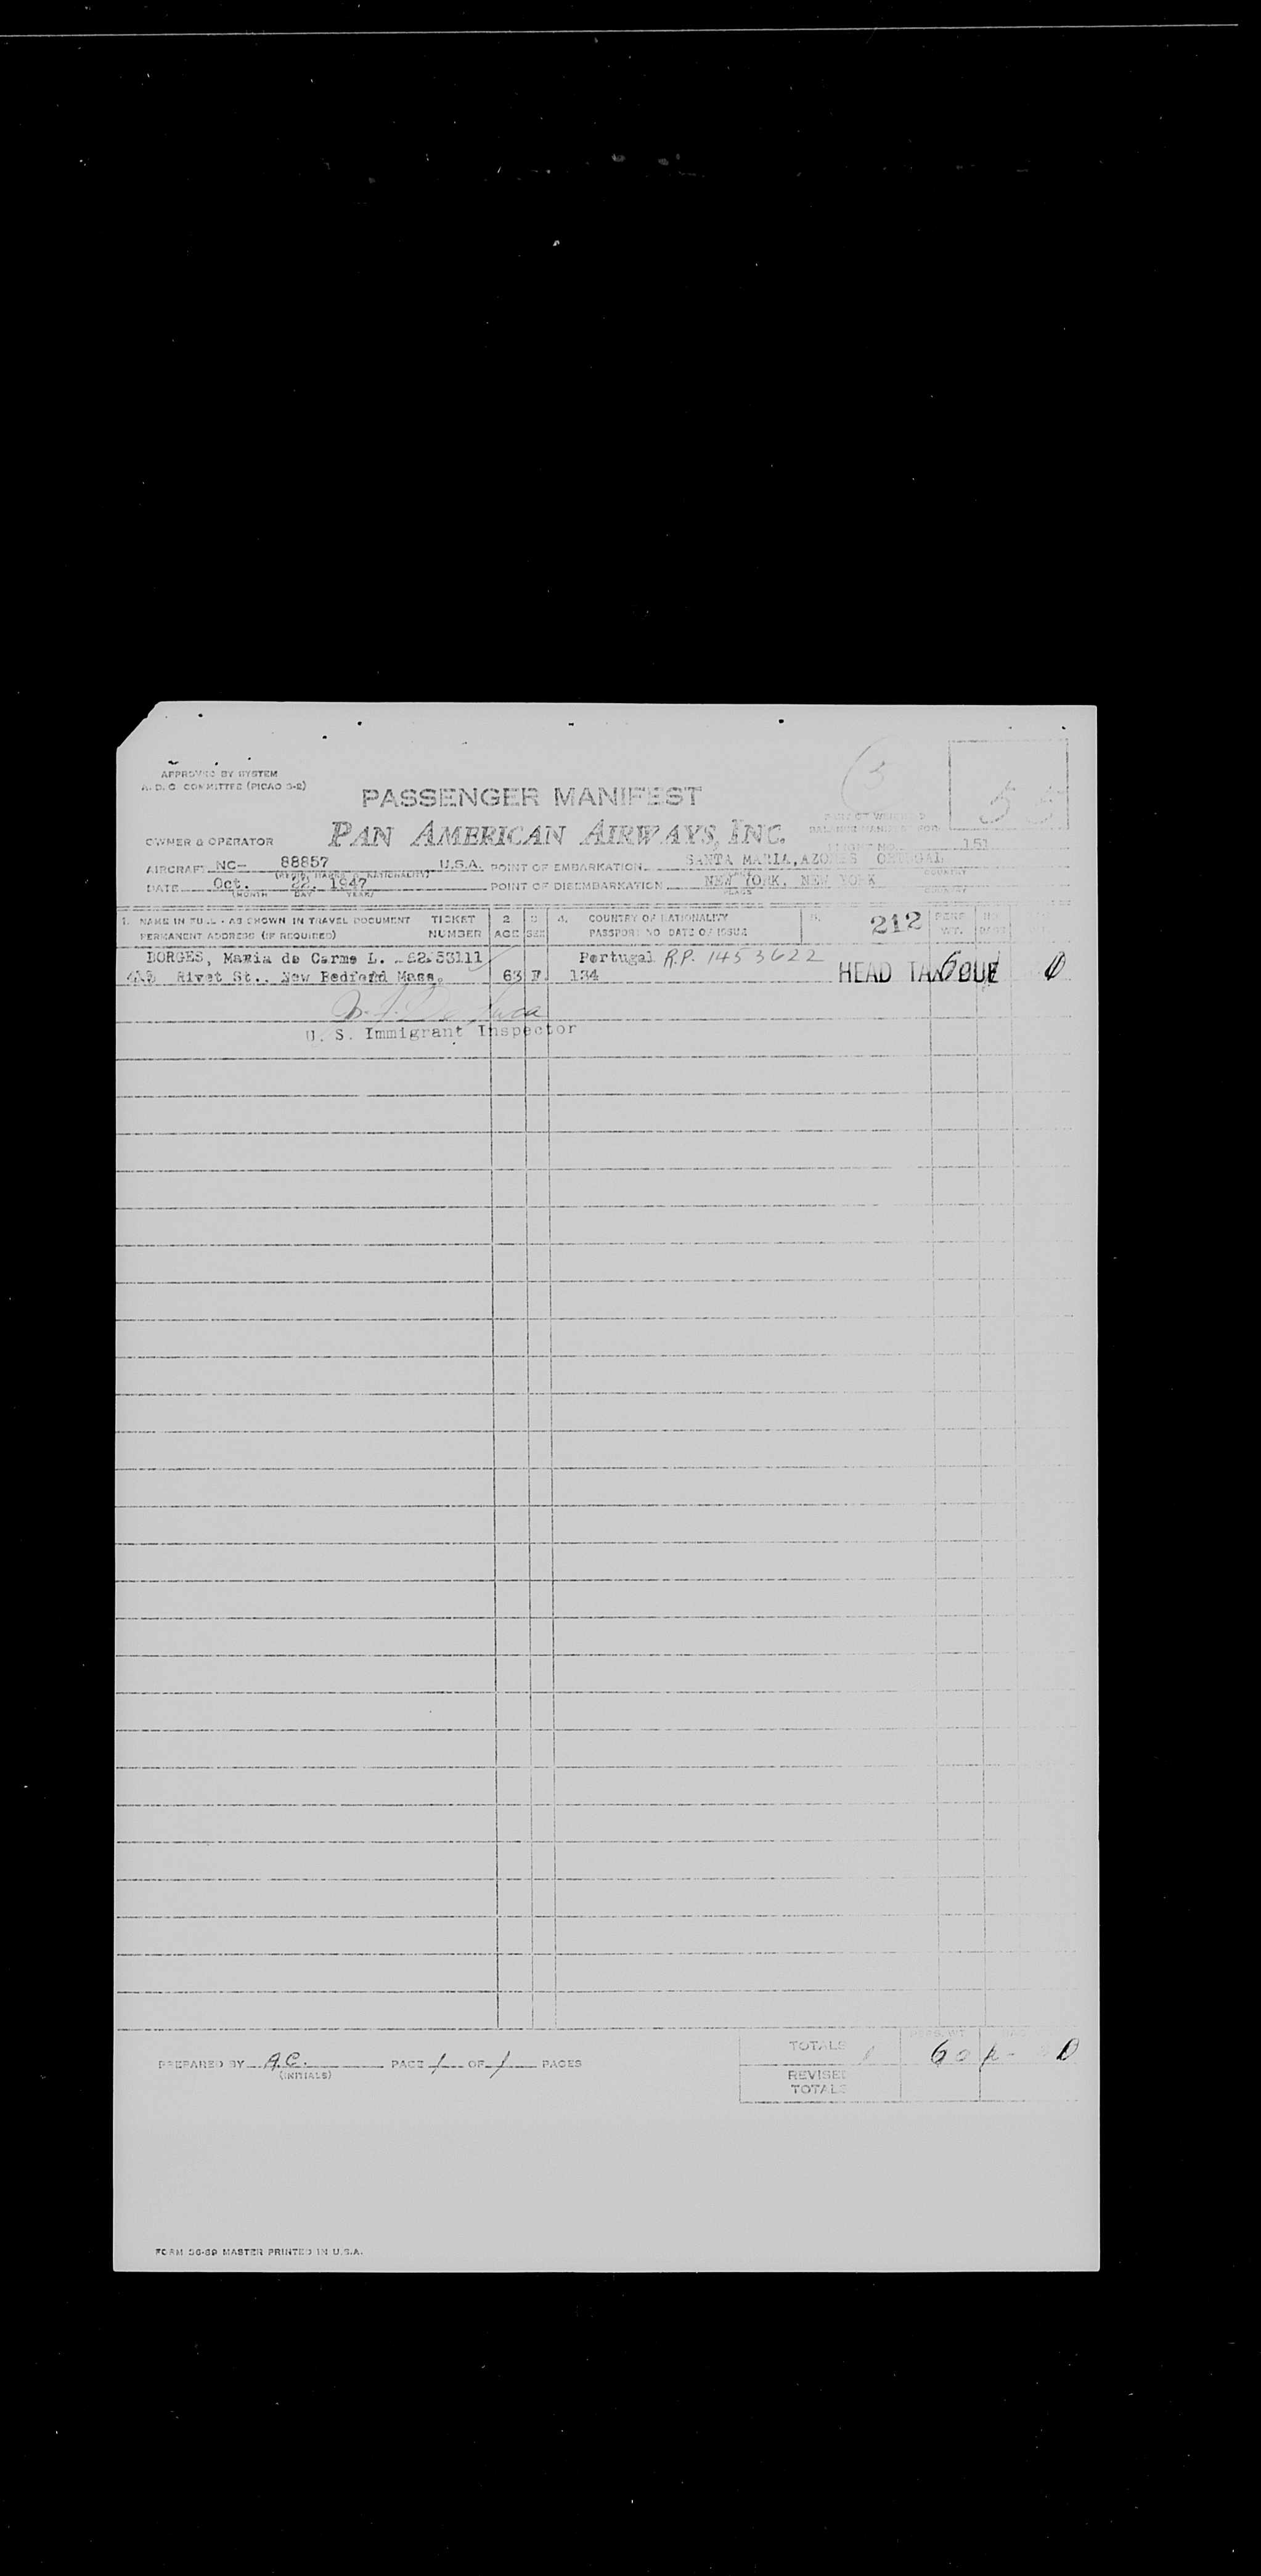 3
55
APPROVED BY SYSTEM
A. D. C. COMMITTEE (PICAO 3-2)
PASSENGER MANIFEST
OWNER & OPERATOR PAN AMERICAN AIRWAYS, INC.
FLIGHT NO. 151
AIRCRAFT NC- 88857 U.S.A. POINT OF EMBARKATION SANTA MARIA, AZORES
COUNTRY
DATE Oct. 22, 1947 POINT OF DISEMBARKATION NEW YORK, NEW YORK
(MONTH DAY YEAR) PLACE COUNTRY
1. NAME IN FULL - AS SHOWN IN TRAVEL DOCUMENT TICKET 2 3 4. COUNTRY OF NATIONALITY 5. 212 PERS
PERMANENT ADDRESS (IF REQUIRED) NUMBER AGE SEX PASSPORT NO DATE OF ISSUE WT.
BORGES, Maria de Carmo L. 53111 Portugal R.P. 1453622
Rivet St., New Bedford Mass. 63 F 134 HEAD TAX DUE 0
U. S. Immigrant Inspector
TOTALS 60 0
PREPARED BY A.C. PAGE 1 OF 1 PAGES
(INITIALS)
REVISED
TOTALS
FORM 36-69 MASTER PRINTED IN U.S.A.